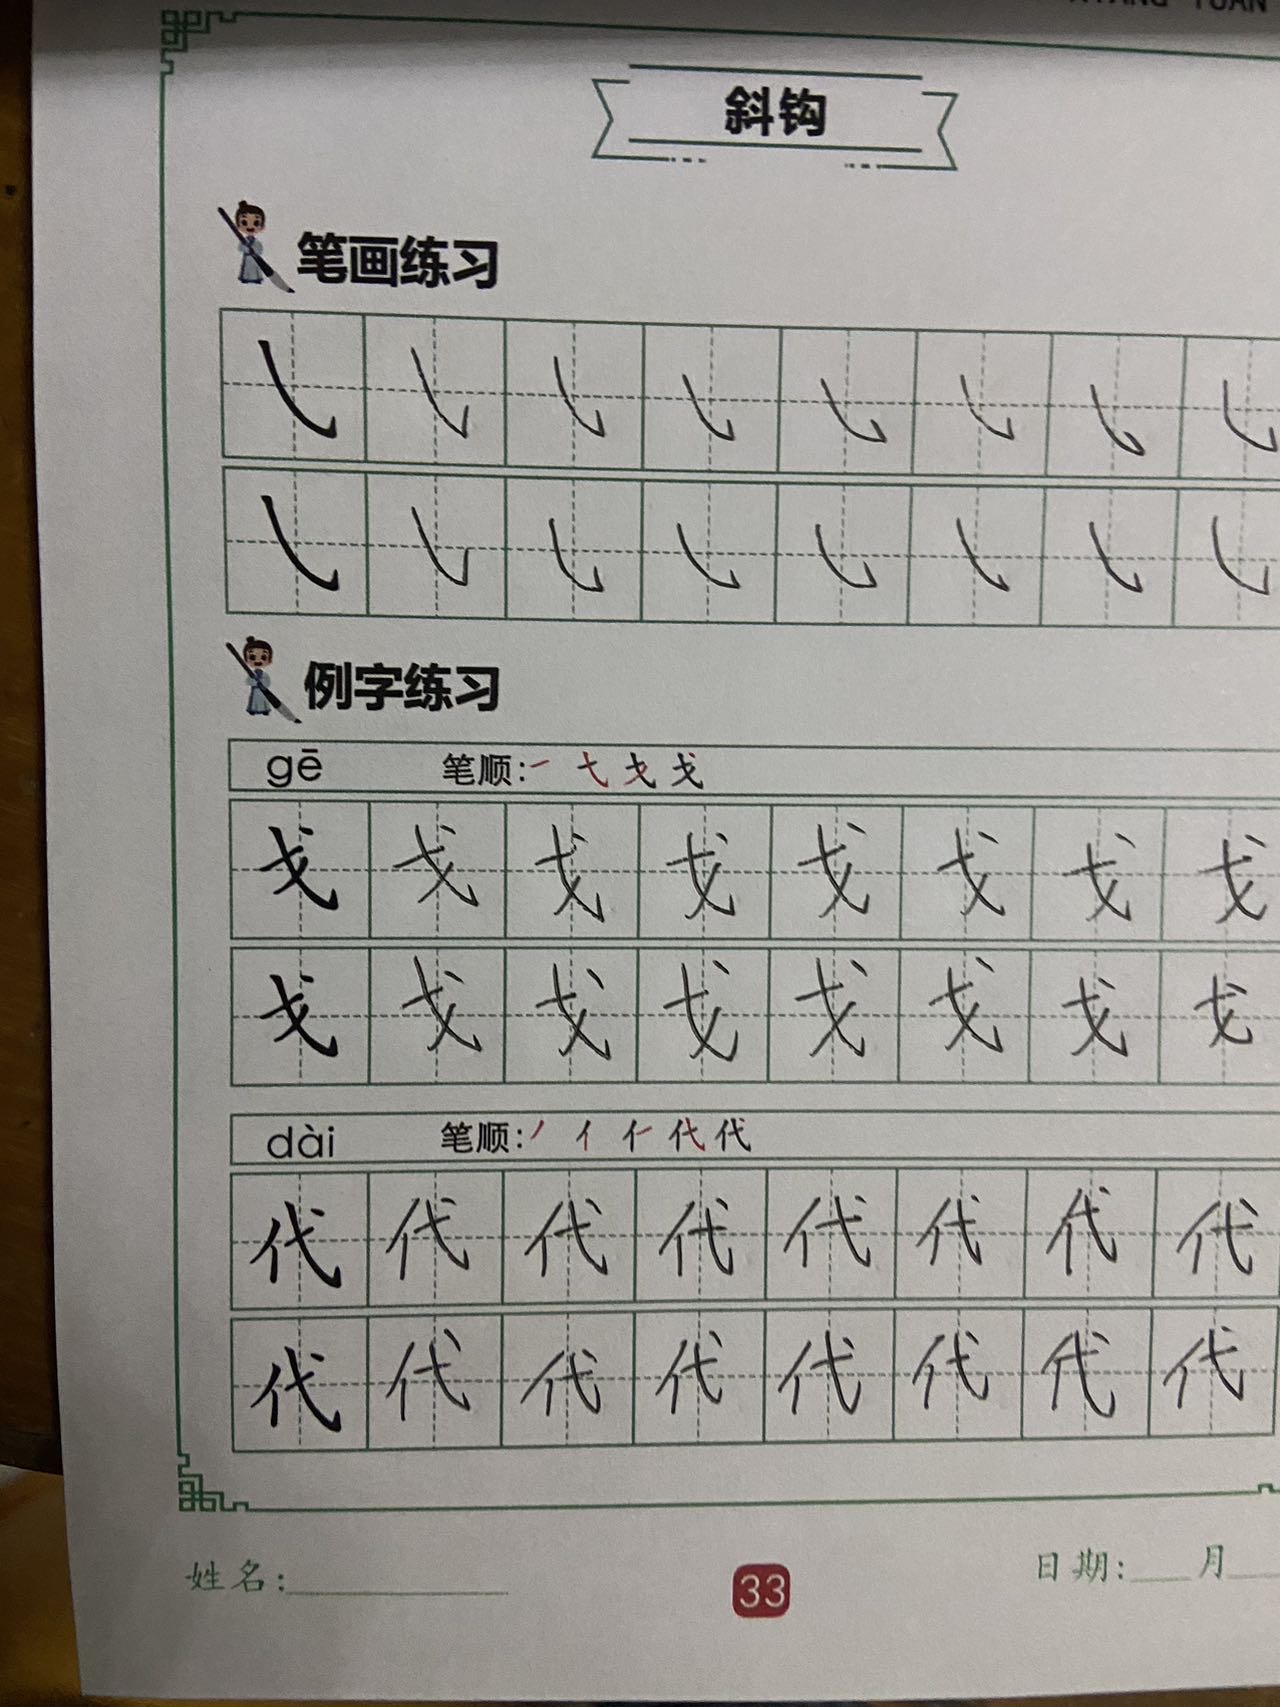 斜钩
笔画练习
㇂ ㇂ ㇂ ㇂ ㇂ ㇂ ㇂ ㇂
㇂ ㇂ ㇂ ㇂ ㇂ ㇂ ㇂ ㇂
例字练习
gē 笔顺:一 弋 戈 戈
戈 戈 戈 戈 戈 戈 戈 戈
戈 戈 戈 戈 戈 戈 戈 戈
dài 笔顺:丿 亻 仁 代 代
代 代 代 代 代 代 代 代
代 代 代 代 代 代 代 代
姓名: 日期: 月
33